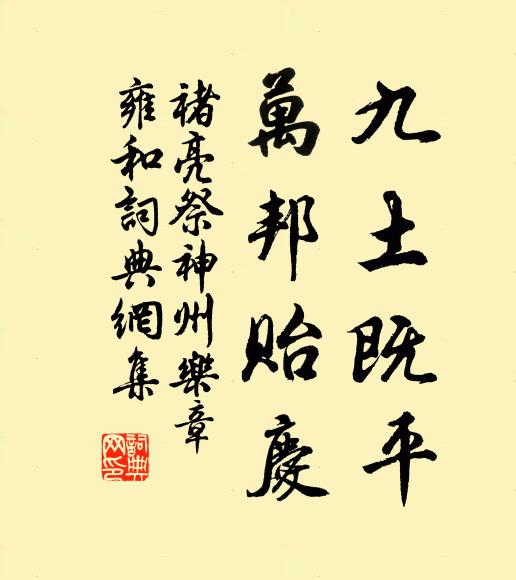 九土既平
萬邦貽慶
褚亮祭神州樂章
雍和詞典網集
詞典
网印